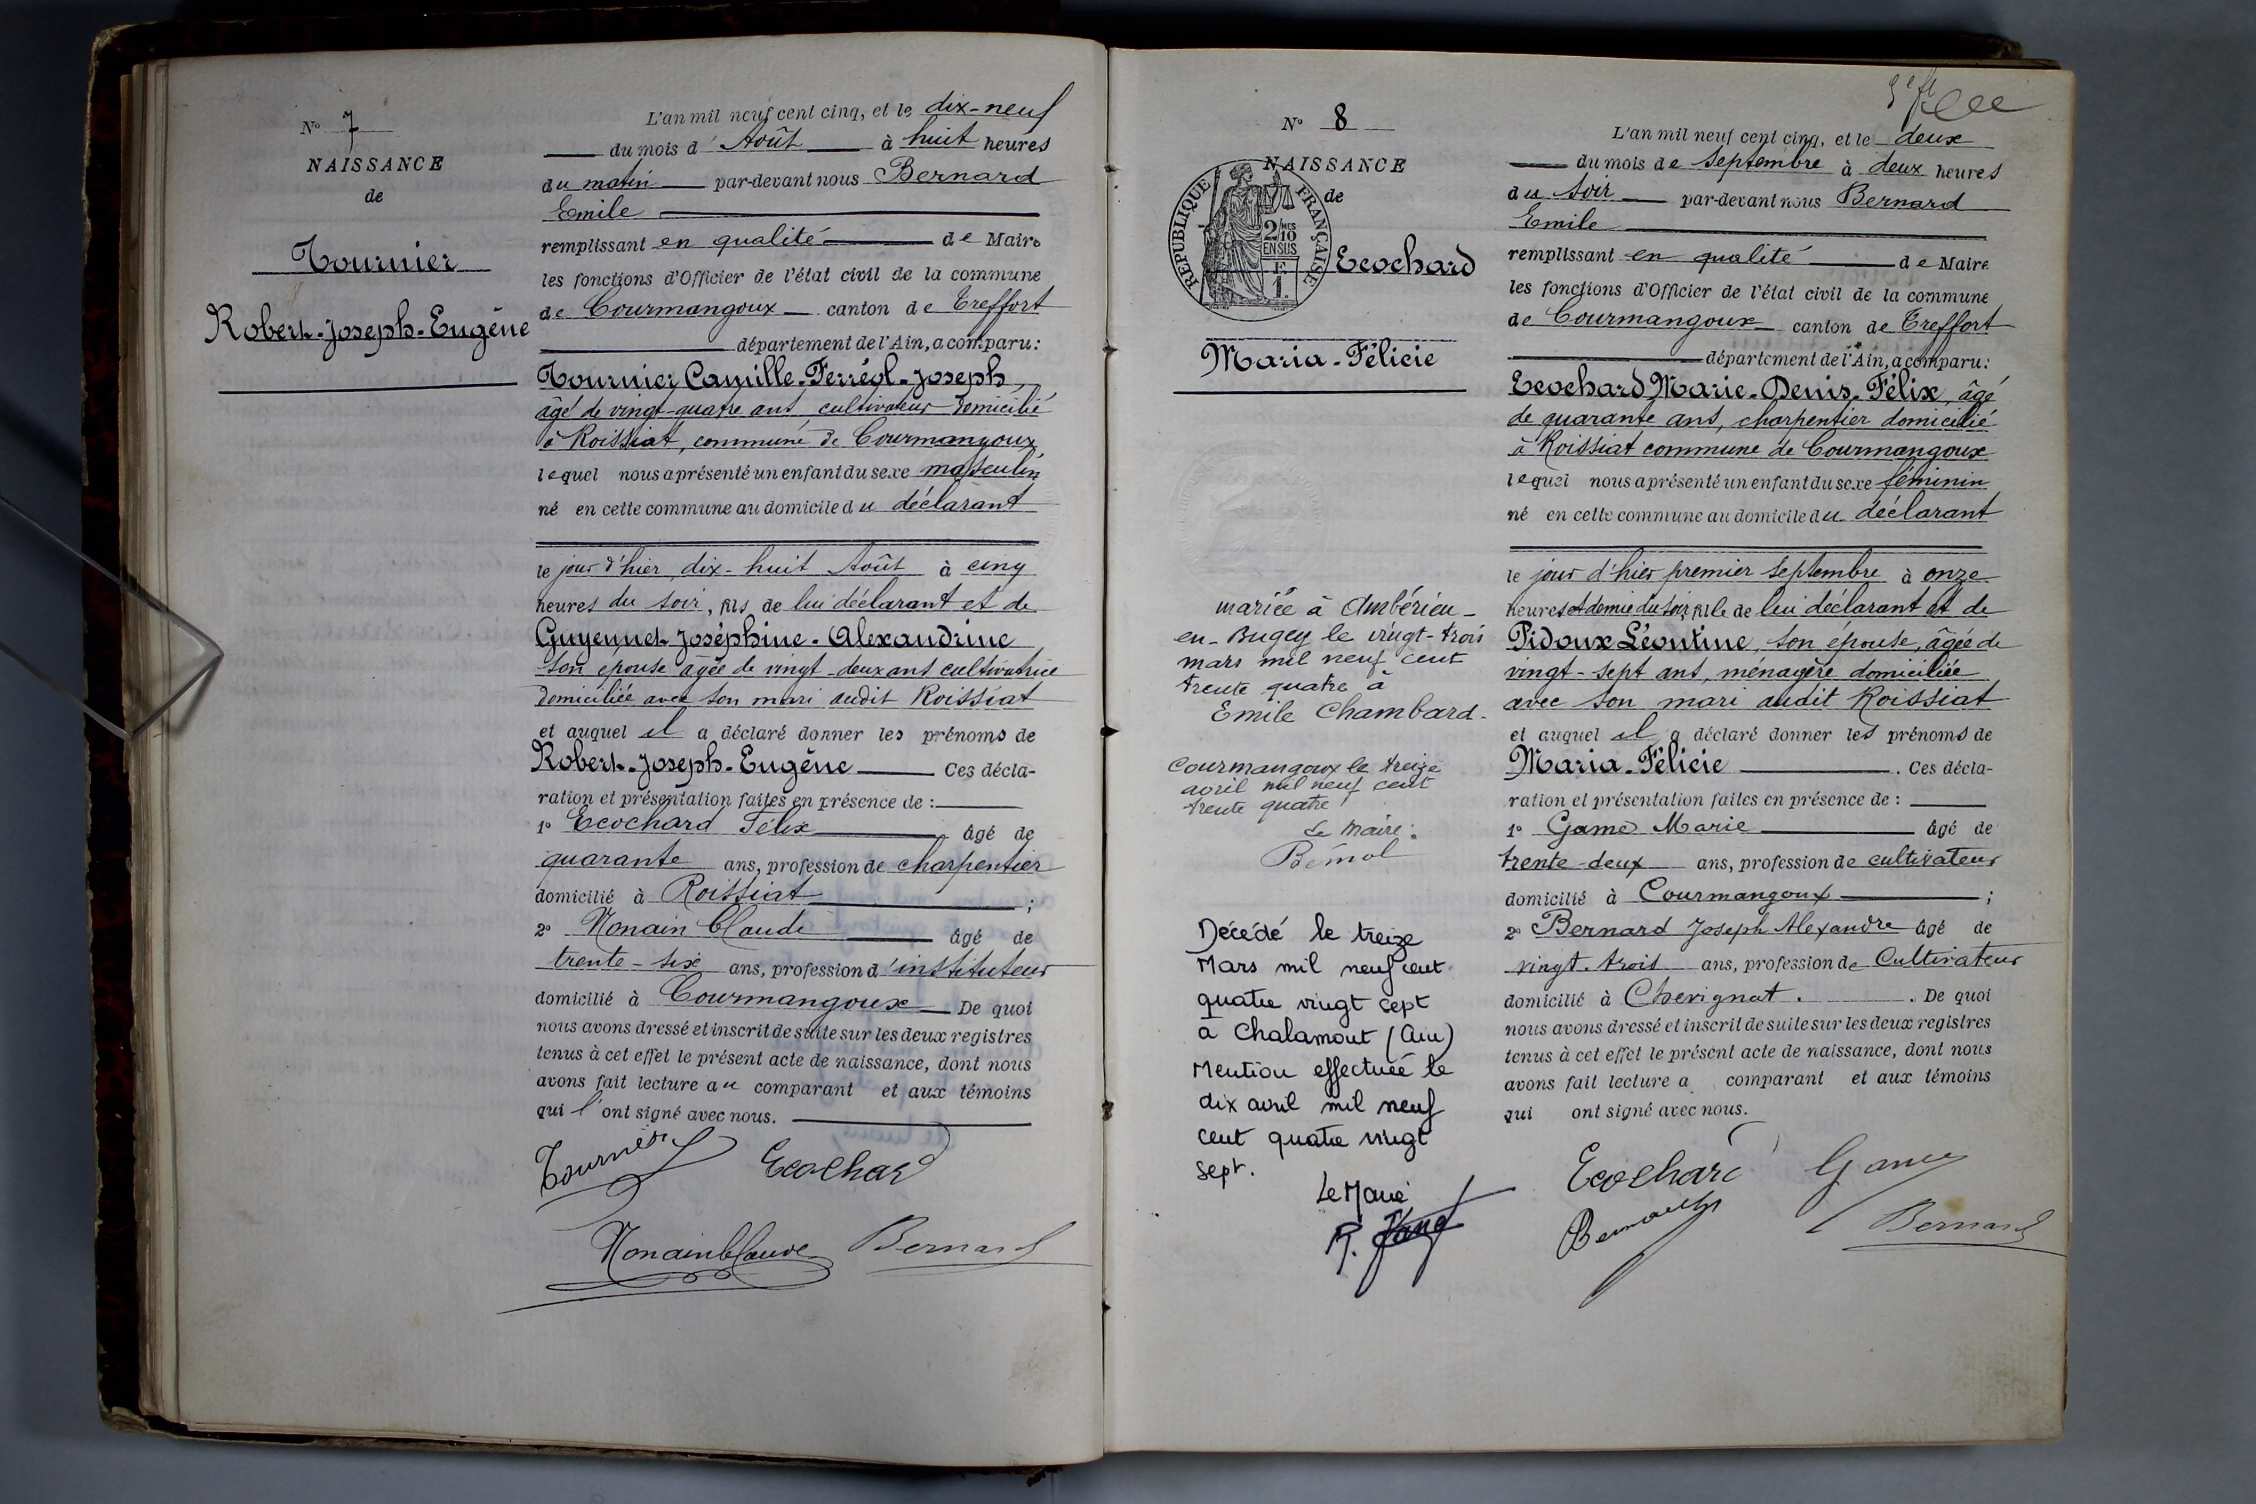 N° 7
NAISSANCE
de
Tournier
Robert-Joseph-Eugène
L'an mil neuf cent cinq, et le dix-neuf
du mois d'Août à huit heures
du matin par-devant nous Bernard
Emile
remplissant en qualité de Maire
les fonctions d'Officier de l'état civil de la commune
de Courmangoux canton de Treffort
département de l'Ain, a comparu:
Tournier Camille-Ferréol-Joseph,
âgé de vingt-quatre ans cultivateur domicilié
à Roissiat, commune de Courmangoux
lequel nous a présenté un enfant du sexe masculin
né en cette commune au domicile du déclarant
le jour d'hier, dix-huit Août à cinq
heures du soir, fils de lui déclarant et de
Guyennet Joséphine-Alexandrine
son épouse âgée de vingt-deux ans cultivatrice
domiciliée avec son mari audit Roissiat
et auquel il a déclaré donner les prénoms de
Robert-Joseph-Eugène Ces décla-
ration et présentation faites en présence de :
1° Ecochard Félix âgé de
quarante ans, profession de charpentier
domicilié à Roissiat ;
2° Monain Claude âgé de
trente-six ans, profession d'instituteur
domicilié à Courmangoux De quoi
nous avons dressé et inscrit de suite sur les deux registres
tenus à cet effet le présent acte de naissance, dont nous
avons fait lecture au comparant et aux témoins
qui l'ont signé avec nous.
Tournier Ecochard
Monain Claude Bernard
N° 8
NAISSANCE
de
RÉPUBLIQUE FRANÇAISE
2/10 MES
EN SUS
F
1.
Ecochard
Maria-Félicie
mariée à Ambérieu-
en-Bugey le vingt-trois
mars mil neuf cent
trente quatre à
Emile Chambard.
Courmangoux le treize
avril mil neuf cent
trente quatre
Le Maire:
Décédé le treize
Mars mil neuf cent
quatre vingt sept
à Chalamont (Ain)
Mention effectuée le
dix avril mil neuf
cent quatre vingt
sept.
Le Maire
L'an mil neuf cent cinq, et le deux
du mois de septembre à deux heures
du soir par-devant nous Bernard
Emile
remplissant en qualité de Maire
les fonctions d'Officier de l'état civil de la commune
de Courmangoux canton de Treffort
département de l'Ain, a comparu:
Ecochard Marie-Denis-Félix, âgé
de quarante ans, charpentier domicilié
à Roissiat commune de Courmangoux
lequel nous a présenté un enfant du sexe féminin
né en cette commune au domicile du déclarant
le jour d'hier premier septembre à onze
heures et demie du soir, fille de lui déclarant et de
Pidoux Léontine, son épouse, âgée de
vingt-sept ans, ménagère domiciliée
avec son mari audit Roissiat
et auquel il a déclaré donner les prénoms de
Maria-Félicie . Ces décla-
ration et présentation faites en présence de :
1° Game Marie âgé de
trente-deux ans, profession de cultivateur
domicilié à Courmangoux ;
2° Bernard Joseph Alexandre âgé de
vingt-trois ans, profession de Cultivateur
domicilié à Chevignat. . De quoi
nous avons dressé et inscrit de suite sur les deux registres
tenus à cet effet le présent acte de naissance, dont nous
avons fait lecture a comparant et aux témoins
qui ont signé avec nous.
Ecochard Game
Bernard Bernard